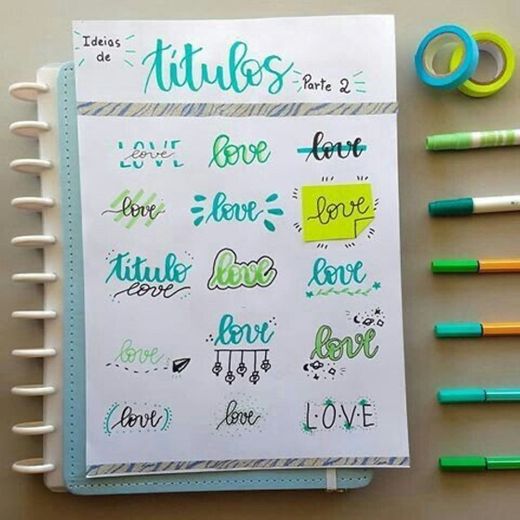 Ideias
de
títulos
Parte 2
LOVE
love
love
love
love
love
love
título
love
love
love
love
love
love
(love)
love
L·O·V·E